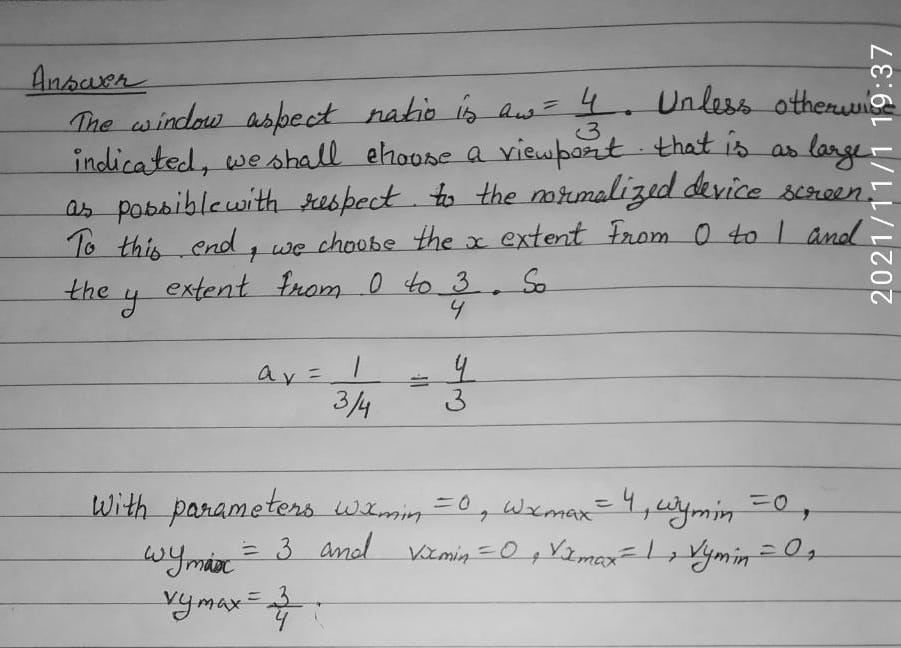 Answer
The window aspect ratio is aw = 4/3. Unless otherwise
indicated, we shall choose a viewport that is as large
as possible with respect to the normalized device screen.
To this end, we choose the x extent from 0 to 1 and
the y extent from 0 to 3/4. So
av = 1/(3/4) = 4/3
With parameters wxmin = 0, wxmax = 4, wymin = 0,
wymax = 3 and vxmin = 0, vxmax = 1, vymin = 0,
vymax = 3/4.
2021/11/1 19:37